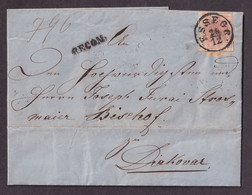 796
RECOM.
ESSEGG
An
Den Hochwürdigsten
Herrn Joseph Juraj Stross
maier Bischof
Diakovar